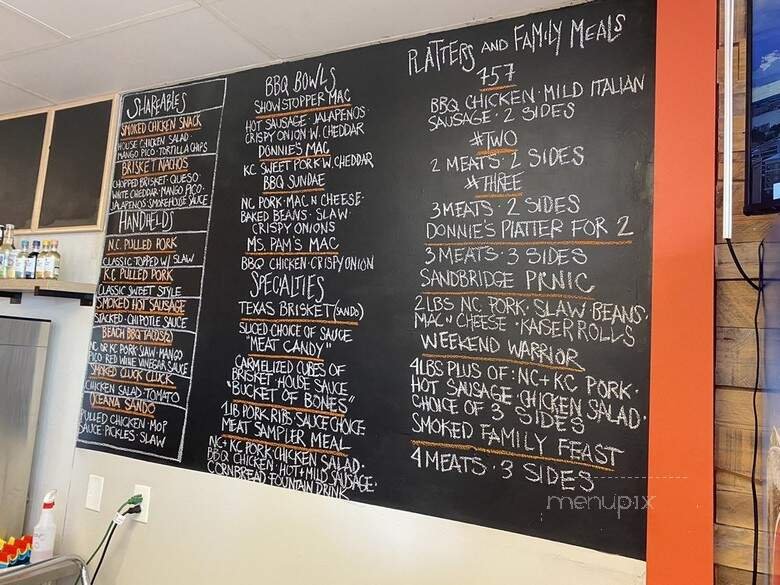 SHAREABLES
SMOKED CHICKEN SNACK
HOUSE CHICKEN SALAD·
MANGO PICO·TORTILLA CHIPS
BRISKET NACHOS
CHOPPED BRISKET·QUESO·
WHITE CHEDDAR·MANGO PICO·
JALAPENOS·SMOKEHOUSE SAUCE
HANDHELDS
N.C. PULLED PORK
CLASSIC·TOPPED W/ SLAW
K.C. PULLED PORK
CLASSIC SWEET STYLE
SMOKED HOT SAUSAGE
STACKED·CHIPOTLE SAUCE
BEACH BBQ TACOS(2)
NC OR KC PORK·SLAW·MANGO
PICO·RED WINE VINEGAR SAUCE
SMOKED CLUCK CLUCK
CHICKEN SALAD·TOMATO
OCEANA SANDO
PULLED CHICKEN·MOP
SAUCE·PICKLES·SLAW
BBQ BOWLS
SHOWSTOPPER MAC
HOT SAUSAGE·JALAPENOS·
CRISPY ONION·W. CHEDDAR
DONNIE'S MAC
KC SWEET PORK·W. CHEDDAR
BBQ SUNDAE
NC PORK·MAC N CHEESE·
BAKED BEANS·SLAW·
CRISPY ONIONS
MS. PAM'S MAC
BBQ CHICKEN·CRISPY ONION
SPECIALTIES
TEXAS BRISKET (SANDO)
SLICED·CHOICE OF SAUCE
"MEAT CANDY"
CARMELIZED CUBES OF
BRISKET·HOUSE SAUCE
"BUCKET OF BONES"
1 LB PORK RIBS·SAUCE CHOICE
MEAT SAMPLER MEAL
NC+KC PORK·CHICKEN SALAD·
BBQ CHICKEN·HOT+MILD SAUSAGE·
CORNBREAD·FOUNTAIN DRINK
PLATTERS AND FAMILY MEALS
757
BBQ CHICKEN·MILD ITALIAN
SAUSAGE·2 SIDES
#TWO
2 MEATS·2 SIDES
#THREE
3 MEATS·2 SIDES
DONNIE'S PLATTER FOR 2
3 MEATS·3 SIDES
SANDBRIDGE PICNIC
2 LBS NC PORK·SLAW·BEANS·
MAC N CHEESE·KAISER ROLLS
WEEKEND WARRIOR
4 LBS PLUS OF: NC+KC PORK·
HOT SAUSAGE·CHICKEN SALAD·
CHOICE OF 3 SIDES
SMOKED FAMILY FEAST
4 MEATS·3 SIDES
menupix